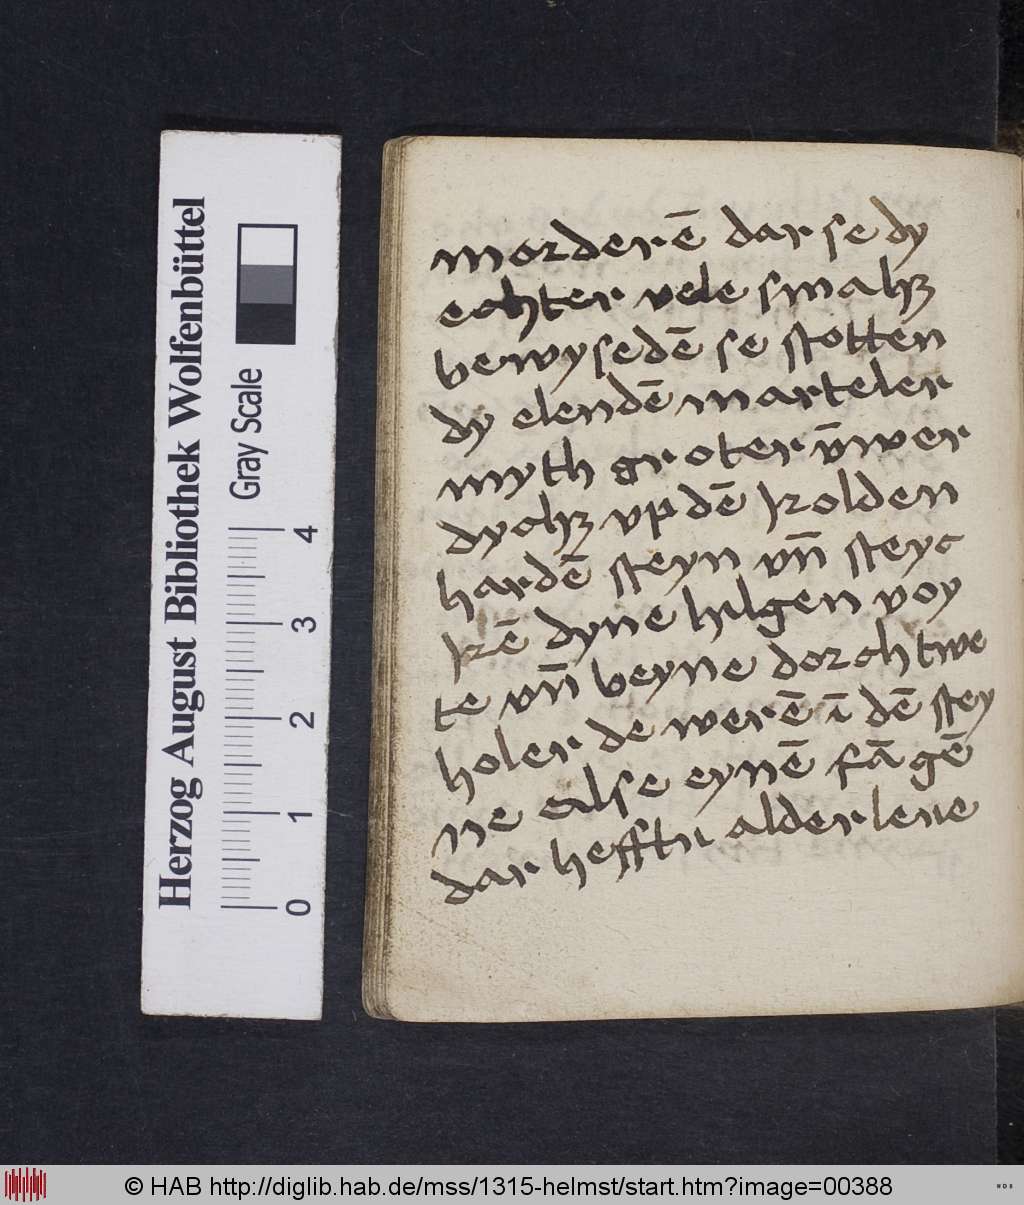 morderē dar se dy
echter vele smaheʒ
bewysedē se stotten
dy elendē marteler
myth groter v̄nver
dycheʒ vp dē kolden
hardē steyn vn̄ steyc
kē dyne hilgen voy
te vn̄ beyne dorch twe
holer de werē ī dē stey
ne alse eynē fāgē
dar hefftu alderleue
Herzog August Bibliothek Wolfenbüttel
Gray Scale
0 1 2 3 4
© HAB http://diglib.hab.de/mss/1315-helmst/start.htm?image=00388